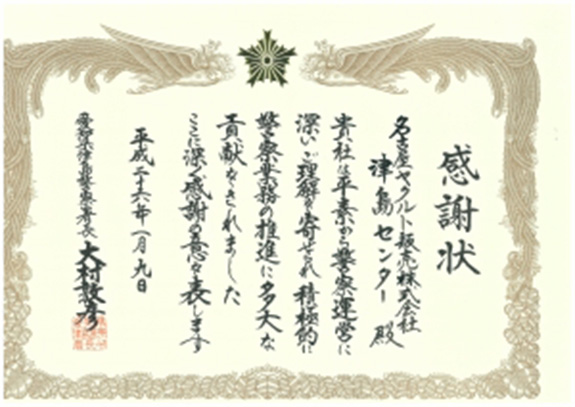 感謝状
名古屋ヤクルト販売株式会社
津島センター 殿
貴社は平素から警察運営に
深いご理解を寄せられ積極的に
警察業務の推進に多大な
貢献をされました
ここに深く感謝の意を表します
平成二十六年一月九日
愛知県津島警察署長 大村敦彦